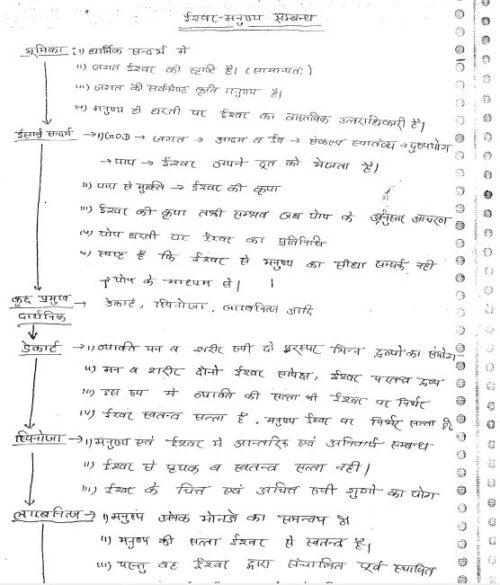 ईश्वर-मनुष्य सम्बन्ध
भूमिका: i) धार्मिक सन्दर्भ में
ii) जगत ईश्वर की सृष्टि है। (सामान्यतः)
iii) जगत की सर्वश्रेष्ठ कृति मनुष्य है।
iv) मनुष्य ही धरती पर ईश्वर का वास्तविक उत्तराधिकारी है।
ईसाई सन्दर्भ → i) GOD → जगत → आदम व ईव → संकल्प स्वातंत्र्य → दुरुपयोग
→ पाप → ईश्वर अपने दूत को भेजता है।
ii) पाप से मुक्ति → ईश्वर की कृपा
iii) ईश्वर की कृपा तभी सम्भव जब पोप के अनुसार आचरण
iv) पोप धरती पर ईश्वर का प्रतिनिधि
v) स्पष्ट है कि ईश्वर से मनुष्य का सीधा सम्पर्क नहीं
पोप के माध्यम से।
कुछ प्रमुख → डेकार्ट, स्पिनोजा, लाइबनित्ज आदि
दार्शनिक
डेकार्ट → i) व्यक्ति मन व शरीर रूपी दो परस्पर भिन्न द्रव्यों का संयोग
ii) मन व शरीर दोनों ईश्वर सापेक्ष, ईश्वर परतन्त्र द्रव्य
iii) इस रूप में व्यक्ति की सत्ता भी ईश्वर पर निर्भर
iv) ईश्वर स्वतन्त्र सत्ता है, मनुष्य ईश्वर पर निर्भर सत्ता है।
स्पिनोजा → i) मनुष्य एवं ईश्वर में आन्तरिक एवं अनिवार्य सम्बन्ध
ii) ईश्वर से पृथक व स्वतन्त्र सत्ता नहीं।
iii) ईश्वर के चित्त एवं अचित्त रूपी गुणों का योग
लाइबनित्ज → i) मनुष्य अनेक मोनडो का समन्वय है।
ii) मनुष्य की सत्ता ईश्वर से स्वतन्त्र है।
iii) परन्तु वह ईश्वर द्वारा संचालित पूर्व स्थापित